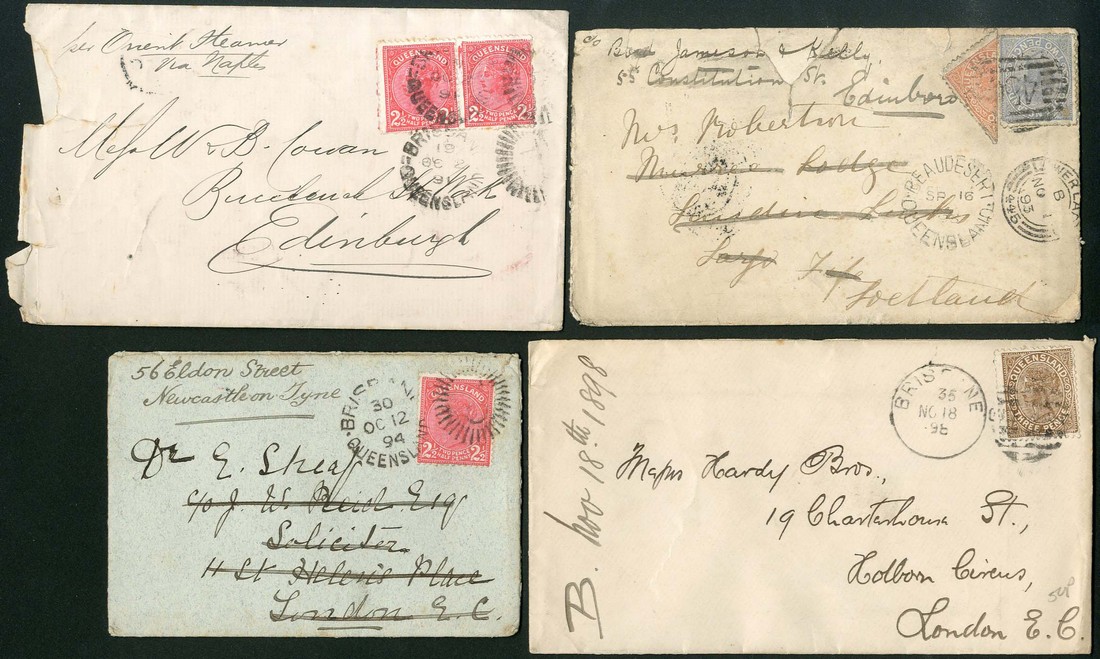 per Orient Steamer
via Naples
QUEENSLAND
2½ TWO PENCE HALF PENNY 2½
QUEENSLAND
2½ TWO PENCE HALF PENNY 2½
BRISBANE
QUEENSLAND
Messrs W. B. Cowan
Edinburgh
c/o Jameson & Kelly,
55 Constitution St.
Edinboro
Mrs Robertson
Lodge
Lundin Links
Largo Fife
Scotland
BEAUDESERT
SP 16
QUEENSLAND
B
NO 1
95
56 Eldon Street
Newcastle on Tyne
BRISBANE
30
OC 12
94
QUEENSLAND
QUEENSLAND
2½ TWO PENCE HALF PENNY 2½
Dr E. Sheaf
c/o J. W. Reid Esq
Soliciter
11 St Helen's Place
London E.C.
B. Nov 18th 1898
BRISBANE
35
NO 18
98
QUEENSLAND
THREE PENCE
Messrs Hardy Bros.,
19 Charterhouse St.,
Holborn Circus,
London E.C.